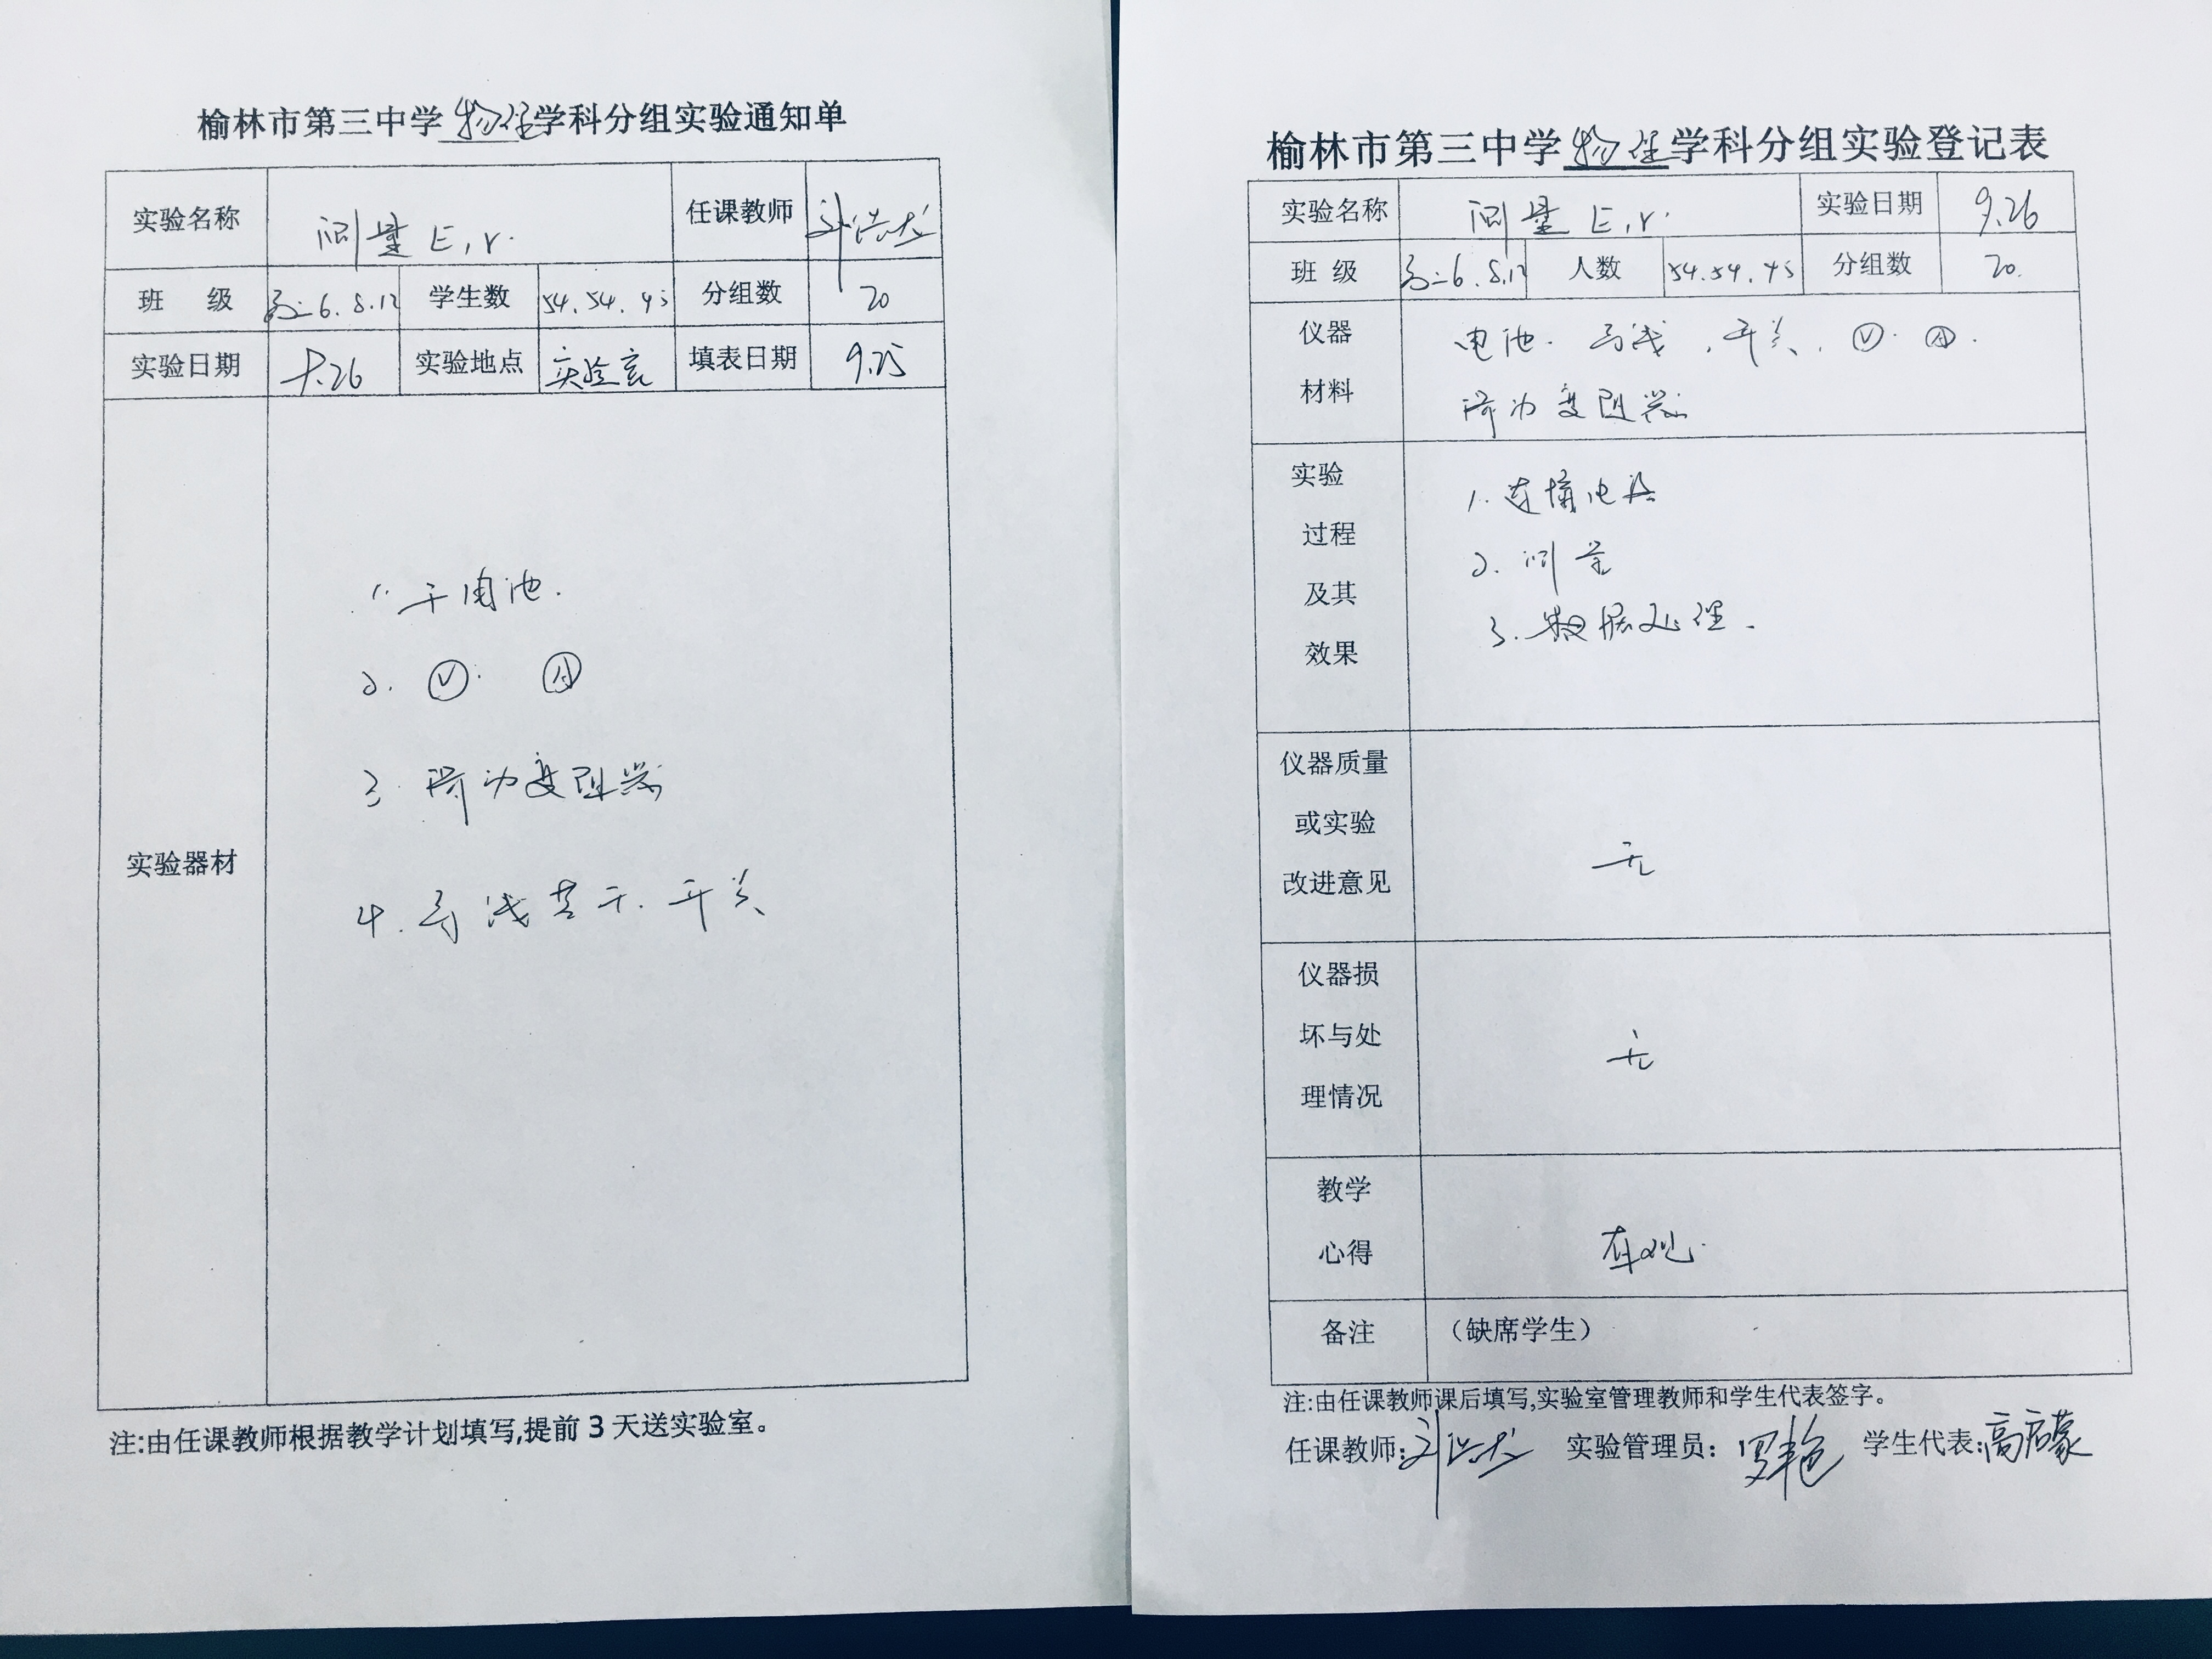 榆林市第三中学物理学科分组实验通知单
实验名称 测量 E,r. 任课教师
班 级 高二6.8.12 学生数 54.54.45 分组数 20
实验日期 9.26 实验地点 实验室 填表日期 9.25
实验器材
1. 干电池.
2. Ⓥ. Ⓐ
3. 滑动变阻器
4. 导线若干. 开关
注:由任课教师根据教学计划填写,提前3天送实验室。
榆林市第三中学物理学科分组实验登记表
实验名称 测量 E,r. 实验日期 9.26
班 级 高二6.8.12 人数 54.54.45 分组数 20.
仪器材料 电池. 导线,开关,Ⓥ.Ⓐ.
滑动变阻器
实验过程及其效果
1. 连接电路
2. 测量
3. 数据处理.
仪器质量或实验改进意见 无
仪器损坏与处理情况 无
教学心得 直观.
备注 (缺席学生)
注:由任课教师课后填写,实验室管理教师和学生代表签字。
任课教师: 实验管理员: 罗艳 学生代表:高启蒙